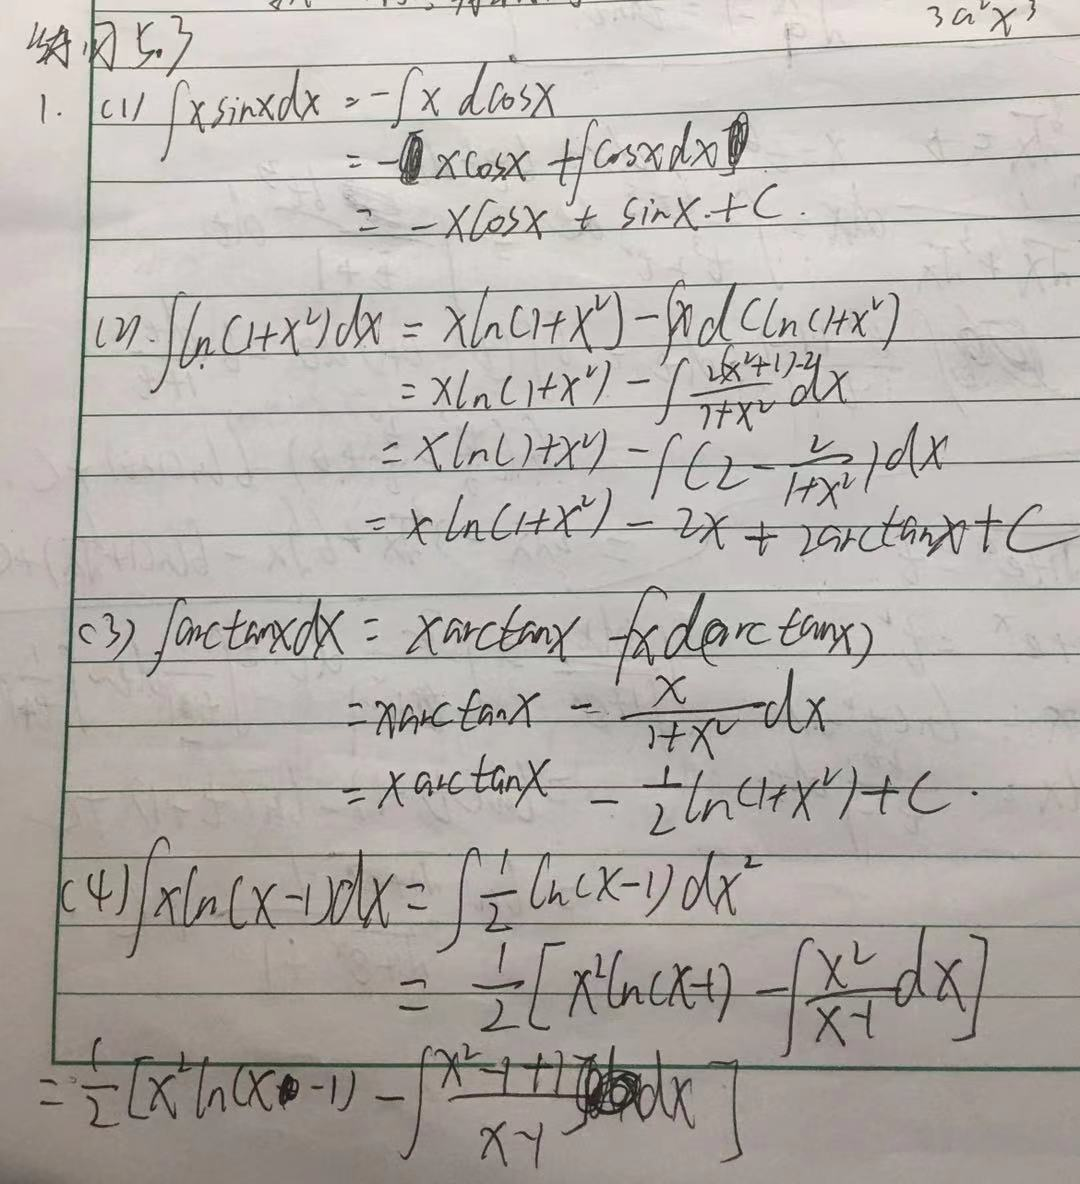 3a²x³
练习5.3
1. (1) ∫xsinxdx = -∫x dcosx
= - xcosx + ∫cosxdx
= -xcosx + sinx + C.
(2). ∫ln(1+x²)dx = xln(1+x²) - ∫x d(ln(1+x²)
= xln(1+x²) - ∫ 2(x²+1)-2/1+x² dx
= xln(1+x²) - ∫(2 - 2/1+x²)dx
= xln(1+x²) - 2x + 2arctanx + C
(3) ∫arctanxdx = xarctanx - ∫x d(arctanx)
= xarctanx - x/1+x² dx
= xarctanx - 1/2 ln(1+x²) + C.
(4) ∫xln(x-1)dx = ∫1/2 ln(x-1)dx²
= 1/2[x²ln(x-1) - ∫x²/x-1 dx]
= 1/2[x²ln(x-1) - ∫x²-1+1/x-1 dx]